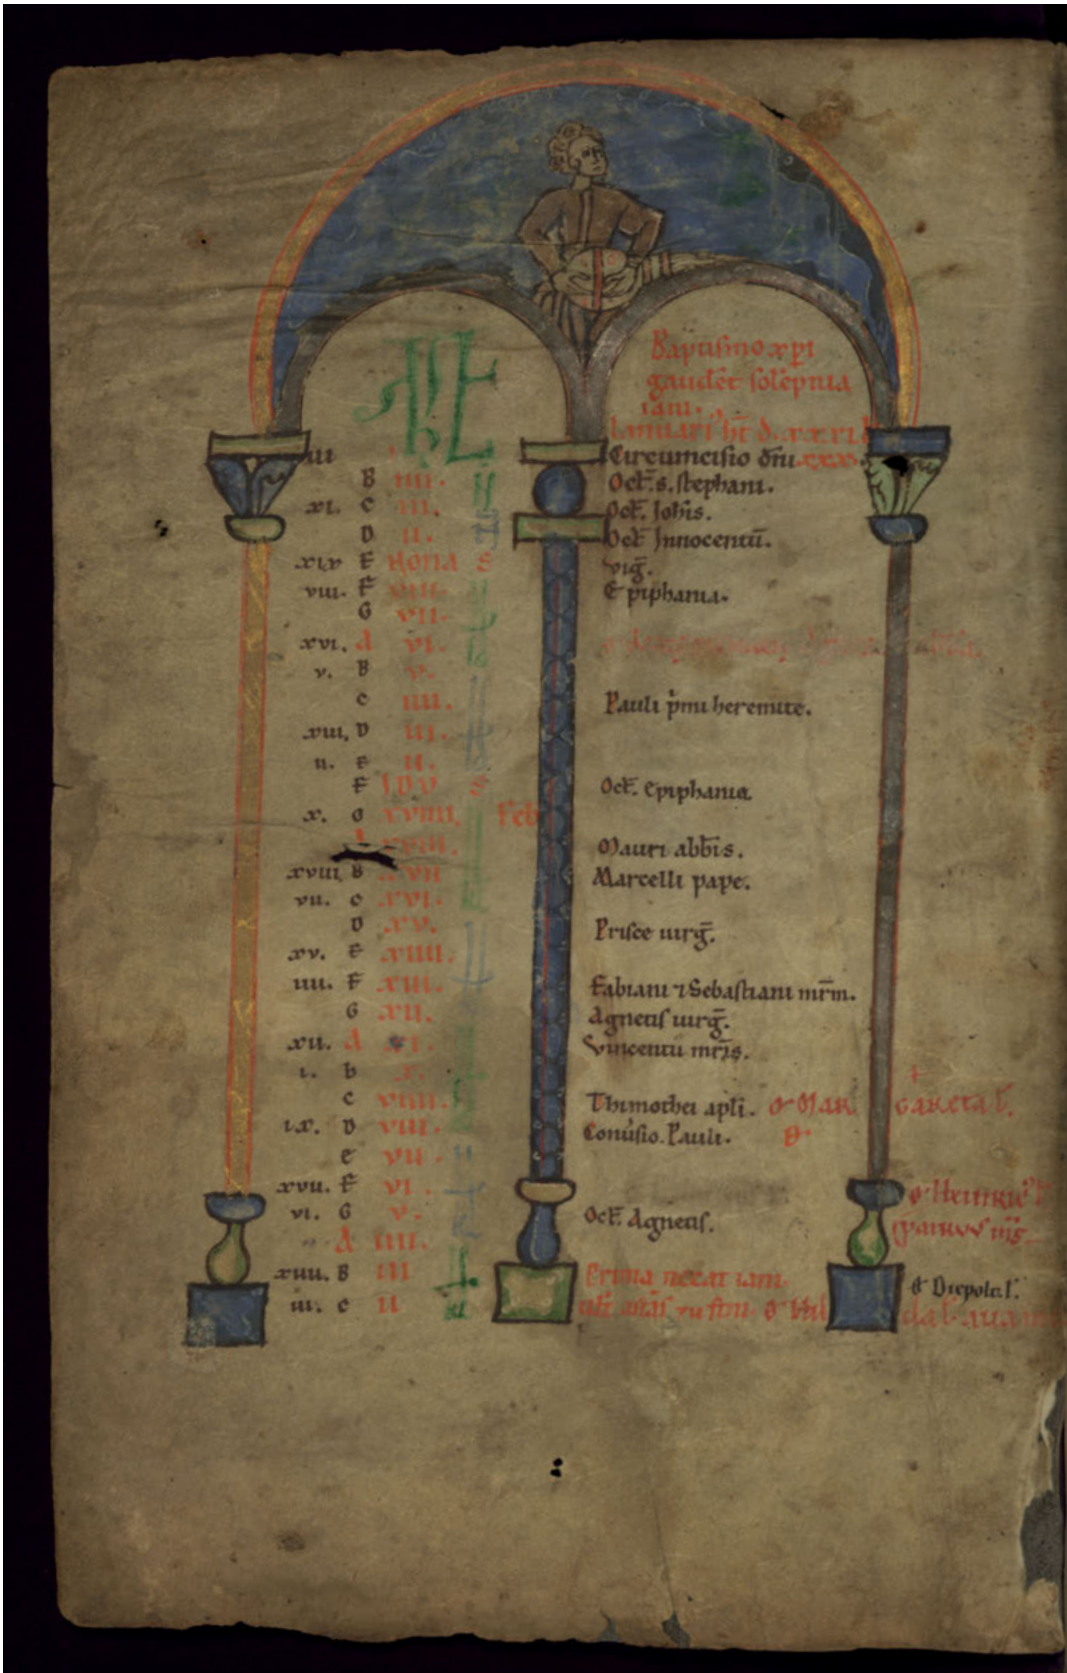 KL
Baptismo xpi
gaudet solepnia
iani.
Ianuari' ht d. xxxi. l
iii Circumcisio dni. xxx
B iiii. Oct. s. stephani.
xi. C iii. Oct. Iohis.
D ii. Oct Innocentu.
xix E Nona s vig.
viii. F viii. Epiphania.
G vii.
xvi. A vi.
v. B v.
C iiii. Pauli pmi heremite.
xiii. D iii.
ii. E ii.
F Idv s Oct. Epiphania
x. G xviiii. Feb
A xviii. Mauri abbis.
xviii B xvii Marcelli pape.
vii. C xvi.
D xv. Prisce uirg.
xv. E xiiii.
iiii. F xiii. Fabiani 7 Sebastiani mrm.
G xii. Agnetis uirg.
xii. A xi. Vincentii mris.
i. b x.
C viiii. Thimothei apli. o Mar gareta l.
ix. D viii. Conusio. Pauli. o
e vii.
xvii. F vi. o Heinric' l
vi. G v. Oct. Agnetis.
A iiii.
xiiii. B iii Prima necat iani o Diepold l.
iii. C ii